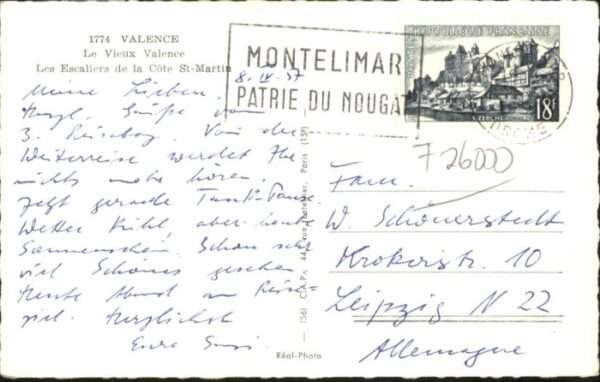 1774 VALENCE
Le Vieux Valence
Les Escaliers de la Côte St-Martin
8. IV. 57
Meine Lieben.
Herzl. Grüße vom
3. Reisetag. Von der
Weiterreise werdet Ihr
nichts mehr hören.
Jetzt gerade Tank-Pause.
Wetter kühl, aber heute
Sonnenschein. Schon sehr
viel Schönes gesehen
Heute Abend am Reise-
ziel. Herzlichst
Eure
MONTELIMAR
PATRIE DU NOUGAT
REPUBLIQUE FRANÇAISE
POSTES
UZERCHE
18F
F 26000
Fam.
W. Schönerstedt
str. 10
Leipzig N 22
Allemagne
Paris (15e)
Réal-Photo